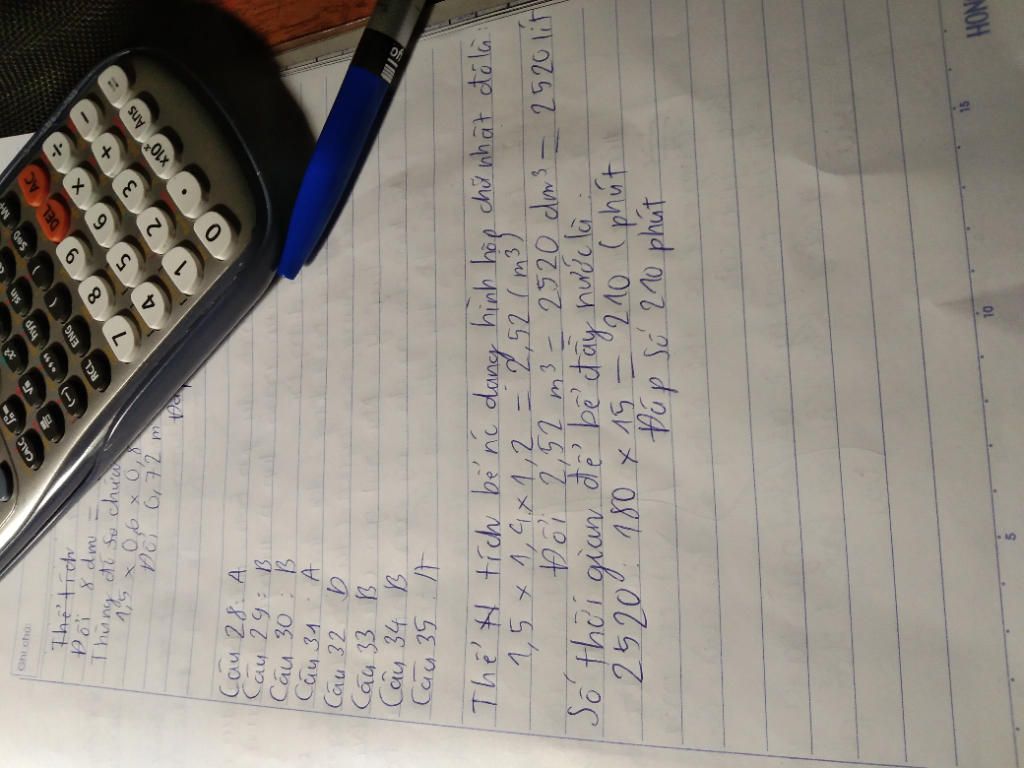 Ghi chú:
Thể tích
Đổi 8 dm =
Thùng đó sơ chứa
1,5 × 0,6 × 0,8
Đổi 0,72 m
Câu 28: A
Câu 29: B
Câu 30: B
Câu 31: A
Câu 32 D
Câu 33 B
Câu 34 B
Câu 35: A
Thể tích bể nc dạng hình hộp chữ nhật đó là:
1,5 × 1,4 × 1,2 = 2,52 (m³)
Đổi 2,52 m³ = 2520 dm³ = 2520 lít
Số thời gian để bể đầy nước là:
2520 : 180 × 15 = 210 (phút
Đáp số 210 phút
5
10
15
HON
CALC
(−)
RCL
ENG
(
)
hyp
sin
S⇔D
M+
x²
√
7
8
9
DEL
AC
4
5
6
×
÷
1
2
3
+
−
0
.
×10ˣ
Ans
=